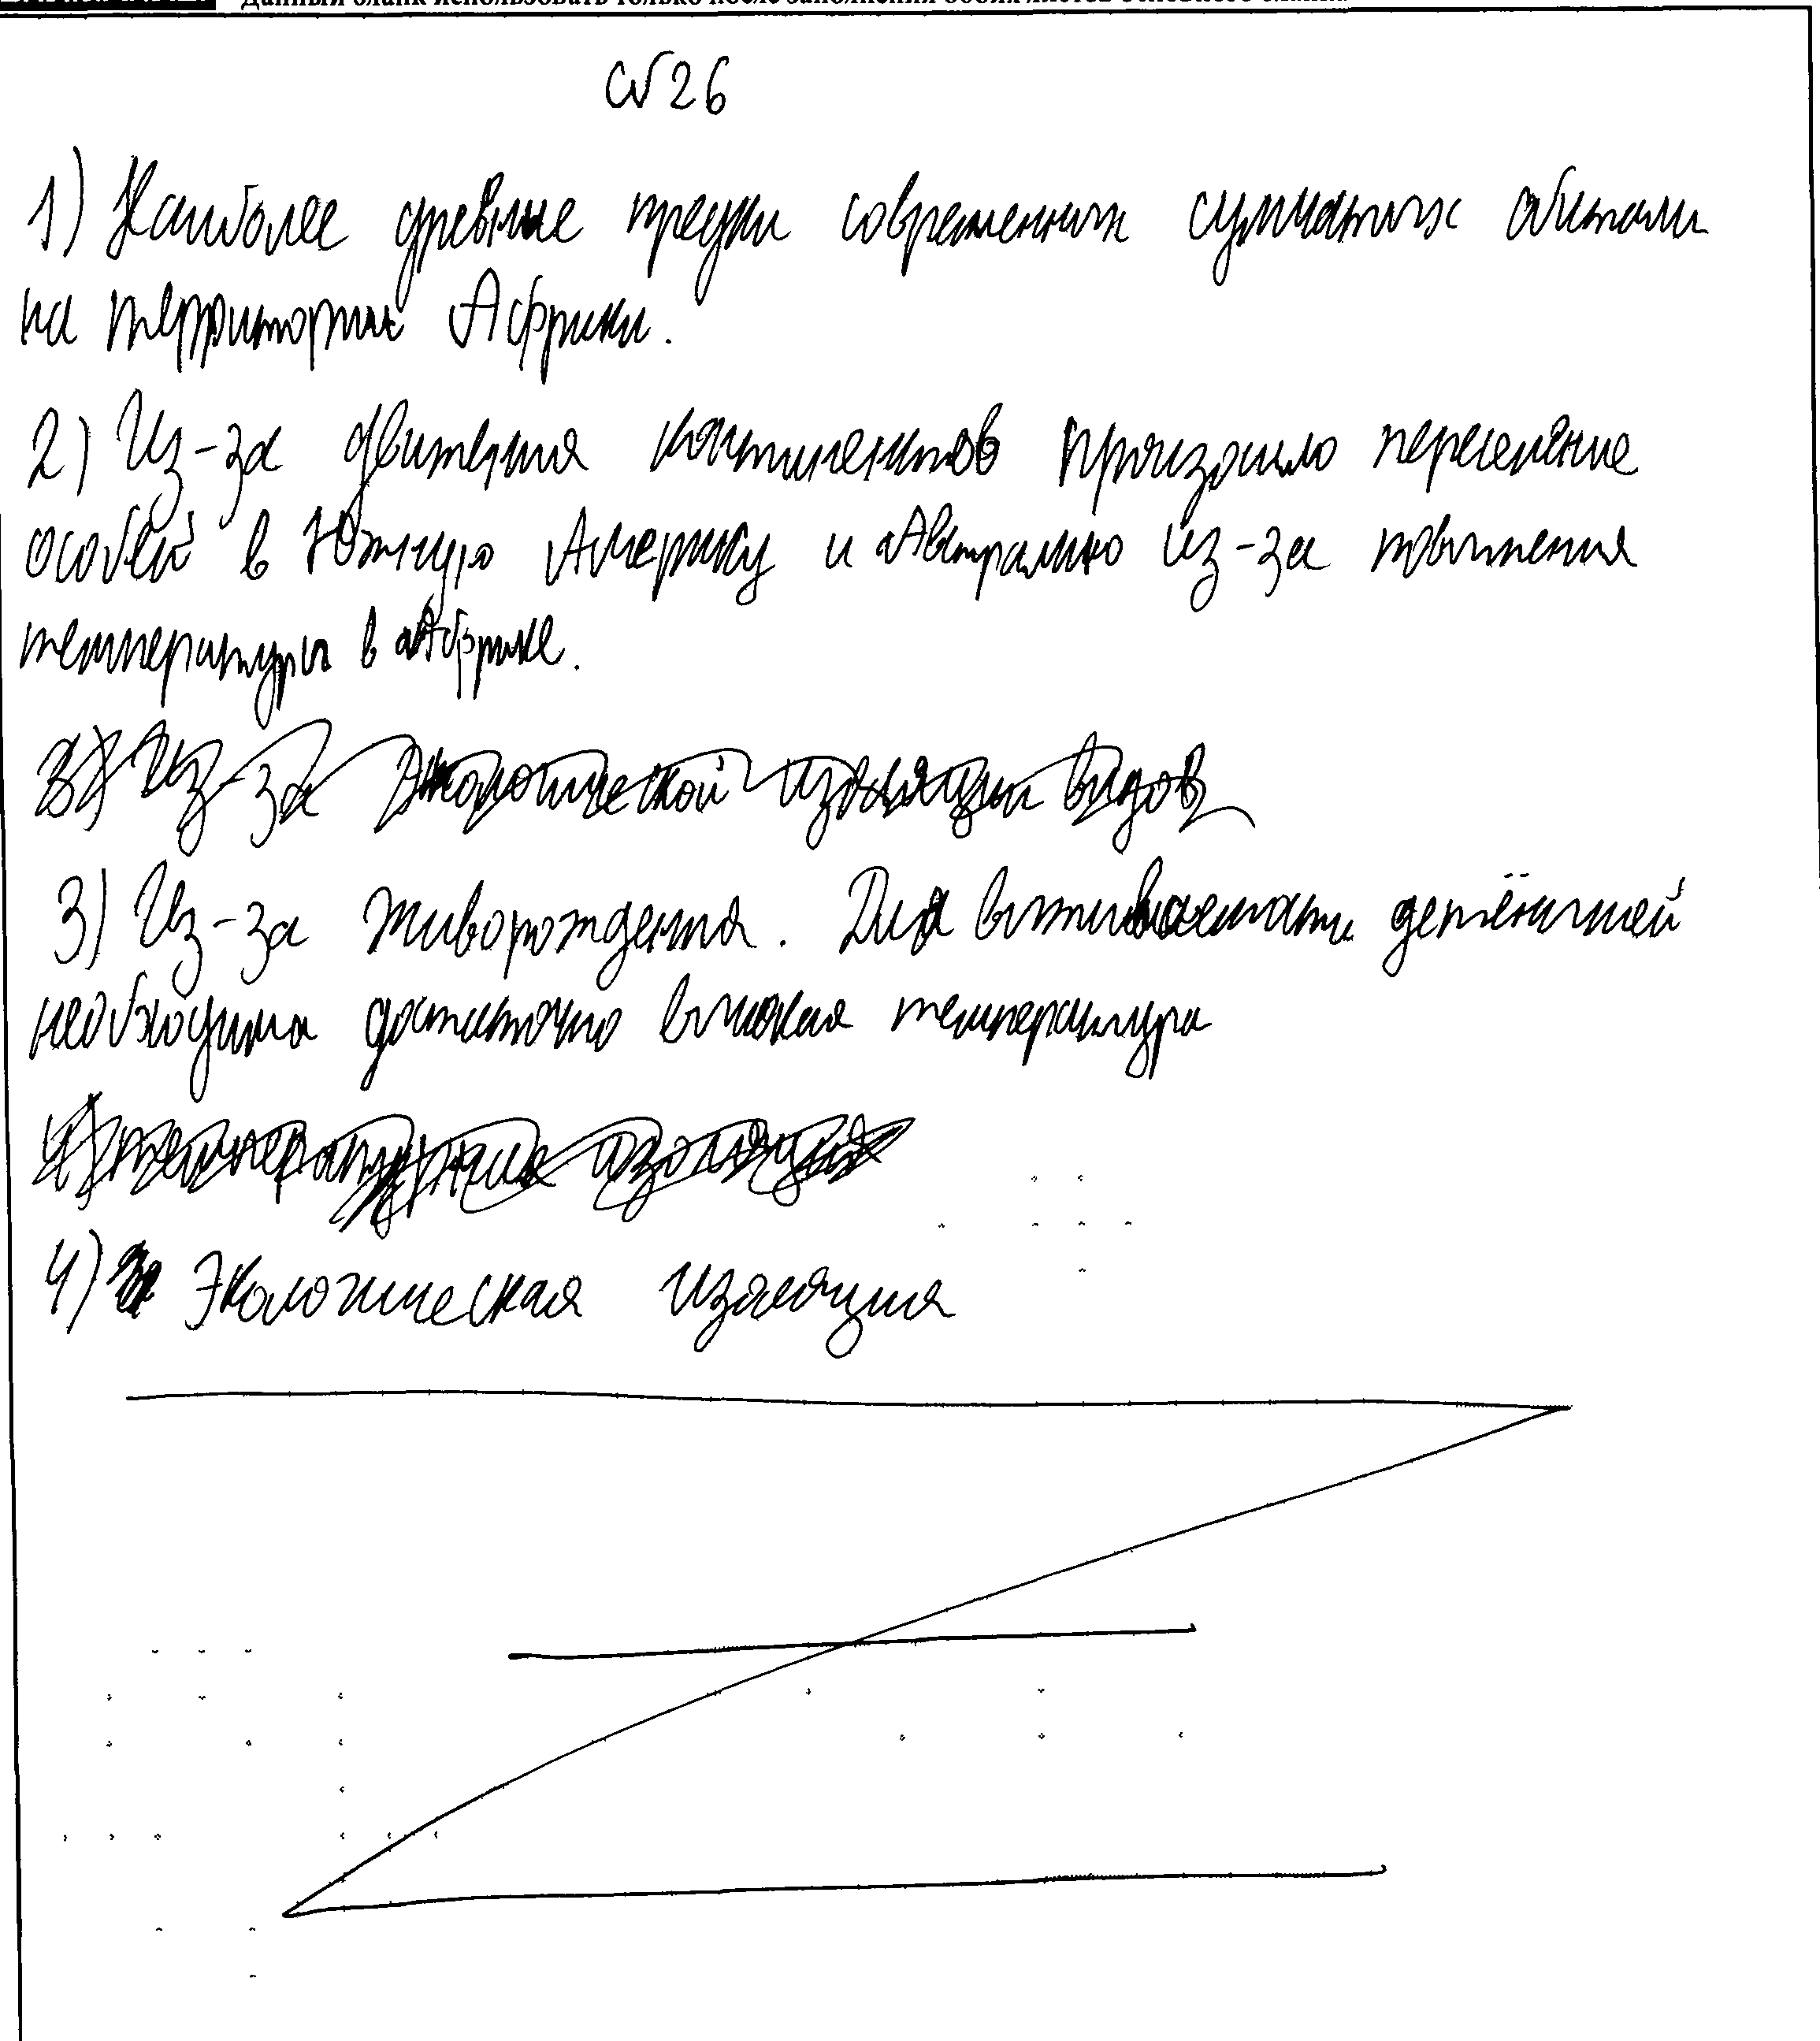 Данный бланк использовать только после заполнения обоих листов основного бланка
№26
1) Наиболее древние предки современных сумчатых обитали
на территории Африки.
2) Из-за движения континентов произошло переселение
особей в Южную Америку и Австралию из-за повышения
температуры в Африке.
3) Из-за экологической изоляции видов
3) Из-за живорождения. Для выживаемости детёнышей
необходима достаточно высокая температура
4) температурная изоляция
4) Экологическая изоляция